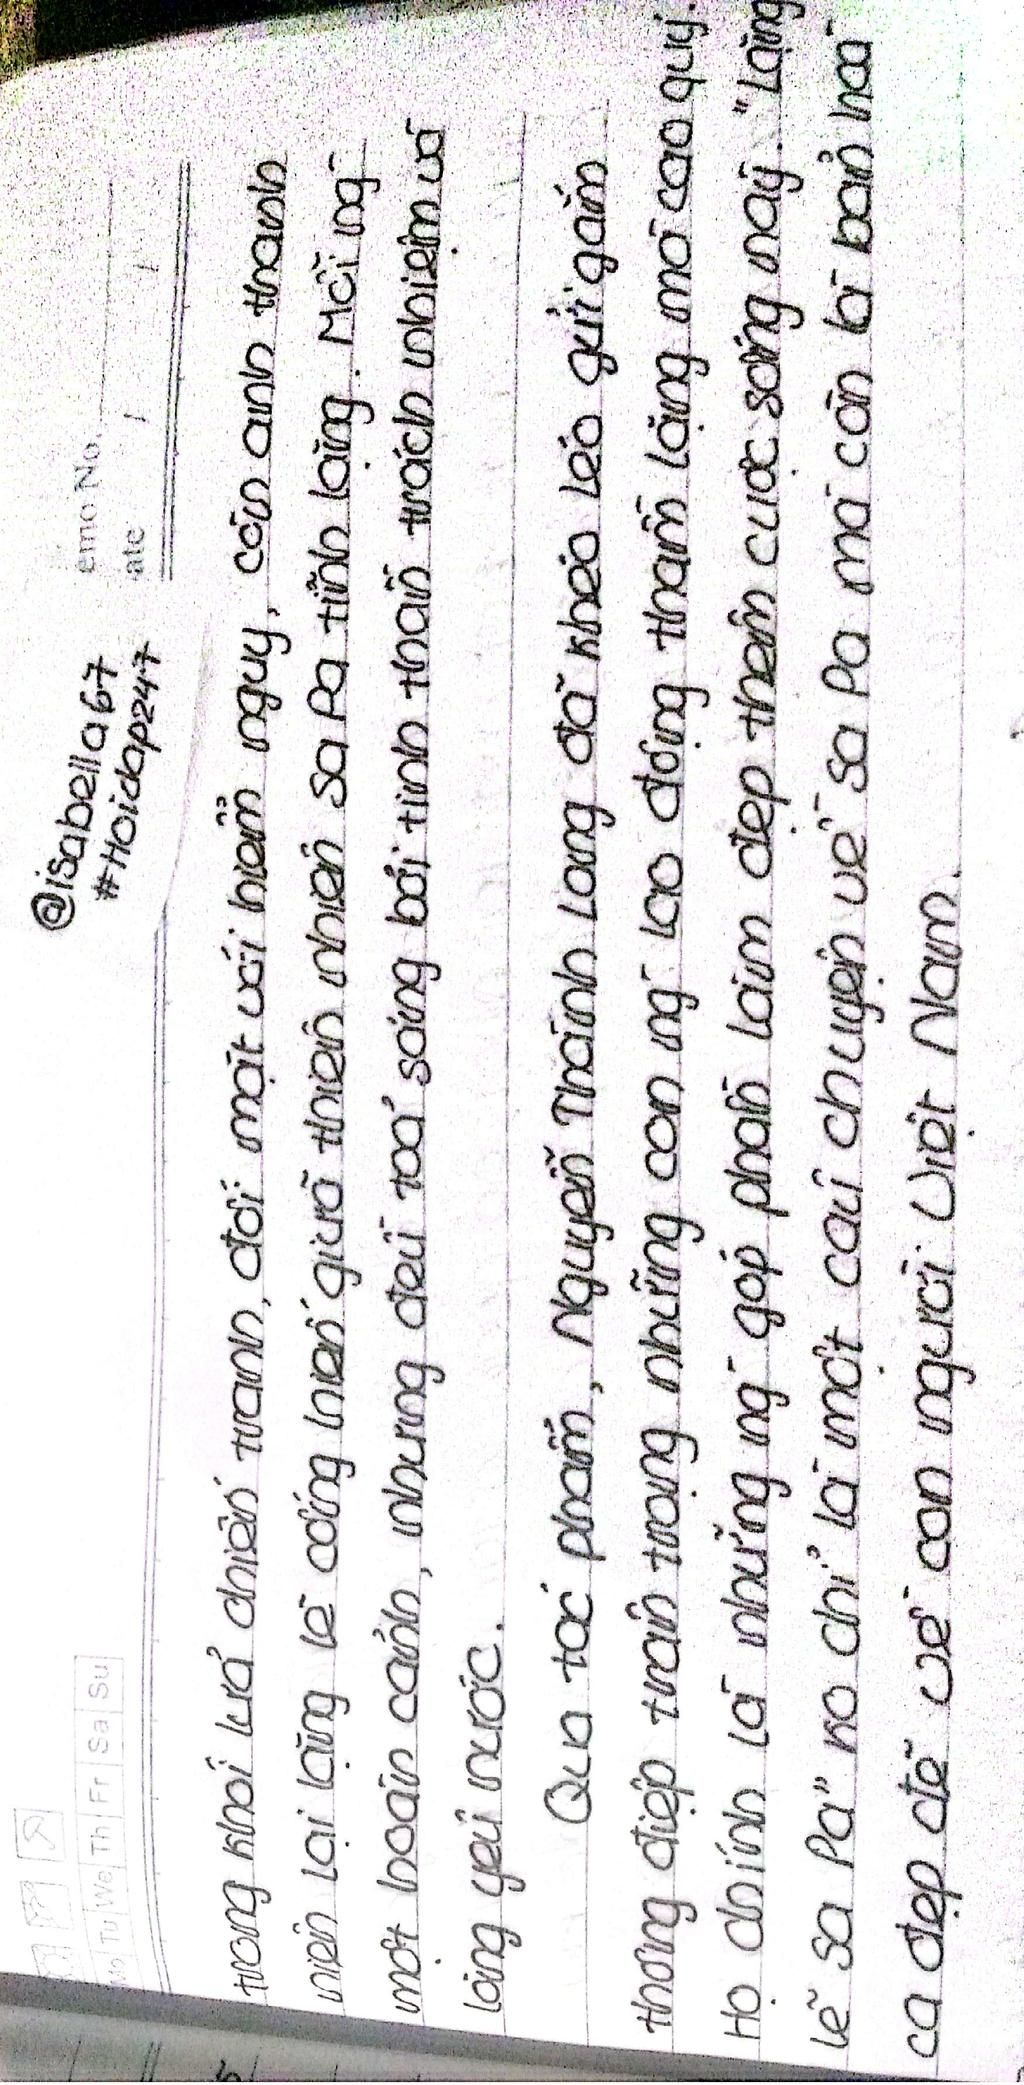 @isabella67
#Hoidap247
emo No.
ate / /
Mo Tu We Th Fr Sa Su
trong khói lửa chiến tranh, đối mặt với hiểm nguy, còn anh thanh
niên lại lặng lẽ cống hiến giữa thiên nhiên Sa Pa tĩnh lặng. Mỗi ng`
một hoàn cảnh, nhưng đều toả sáng bởi tinh thần trách nhiệm và
lòng yêu nước.
Qua tác phẩm, Nguyễn Thành Long đã khéo léo gửi gắm
thông điệp trân trọng những con ng` lao động thầm lặng mà cao quý.
Họ chính là những ng` góp phần làm đẹp thêm cuộc sống này. "Lặng
lẽ Sa Pa" ko chỉ là một câu chuyện về Sa Pa mà còn là bản hoà
ca đẹp đẽ về con người Việt Nam.